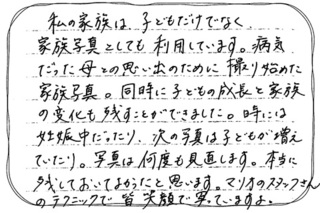 私の家族は子どもだけでなく
家族写真としても利用しています。病気
だった母との思い出のために撮り始めた
家族写真。同時に子どもの成長と家族
の変化も残すことができました。時には
妊娠中だったり、次の写真は子どもが増え
ていたり。写真は何度も見直します。本当に
残しておいてよかったと思います。マリオのスタッフさん
のテクニックで皆笑顔で写っていますよ。